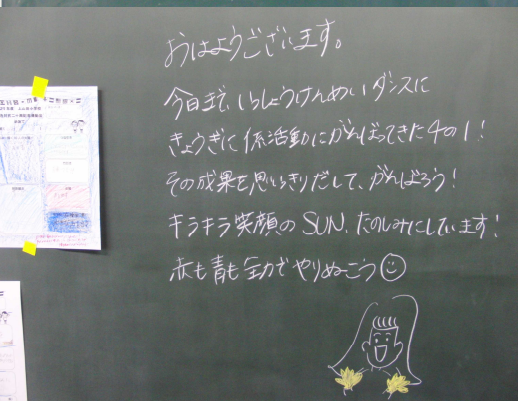 おはようございます。
今日まで、いっしょうけんめいダンスに
きょうぎに係活動にがんばってきた4の1!
その成果を思いっきりだして、がんばろう!
キラキラ笑顔のSUN、たのしみにしています!
赤も青も全力でやりぬこう